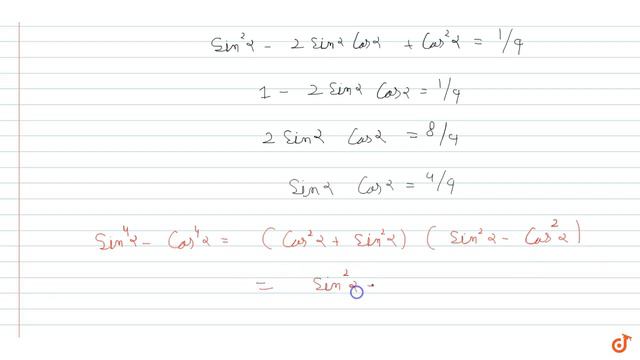 Sin²α - 2 Sinα Cosα + Cos²α = 1/9
1 - 2 Sinα Cosα = 1/9
2 Sinα Cosα = 8/9
Sinα Cosα = 4/9
Sin⁴α - Cos⁴α = (Cos²α + Sin²α) (Sin²α - Cos²α)
= Sin²α -